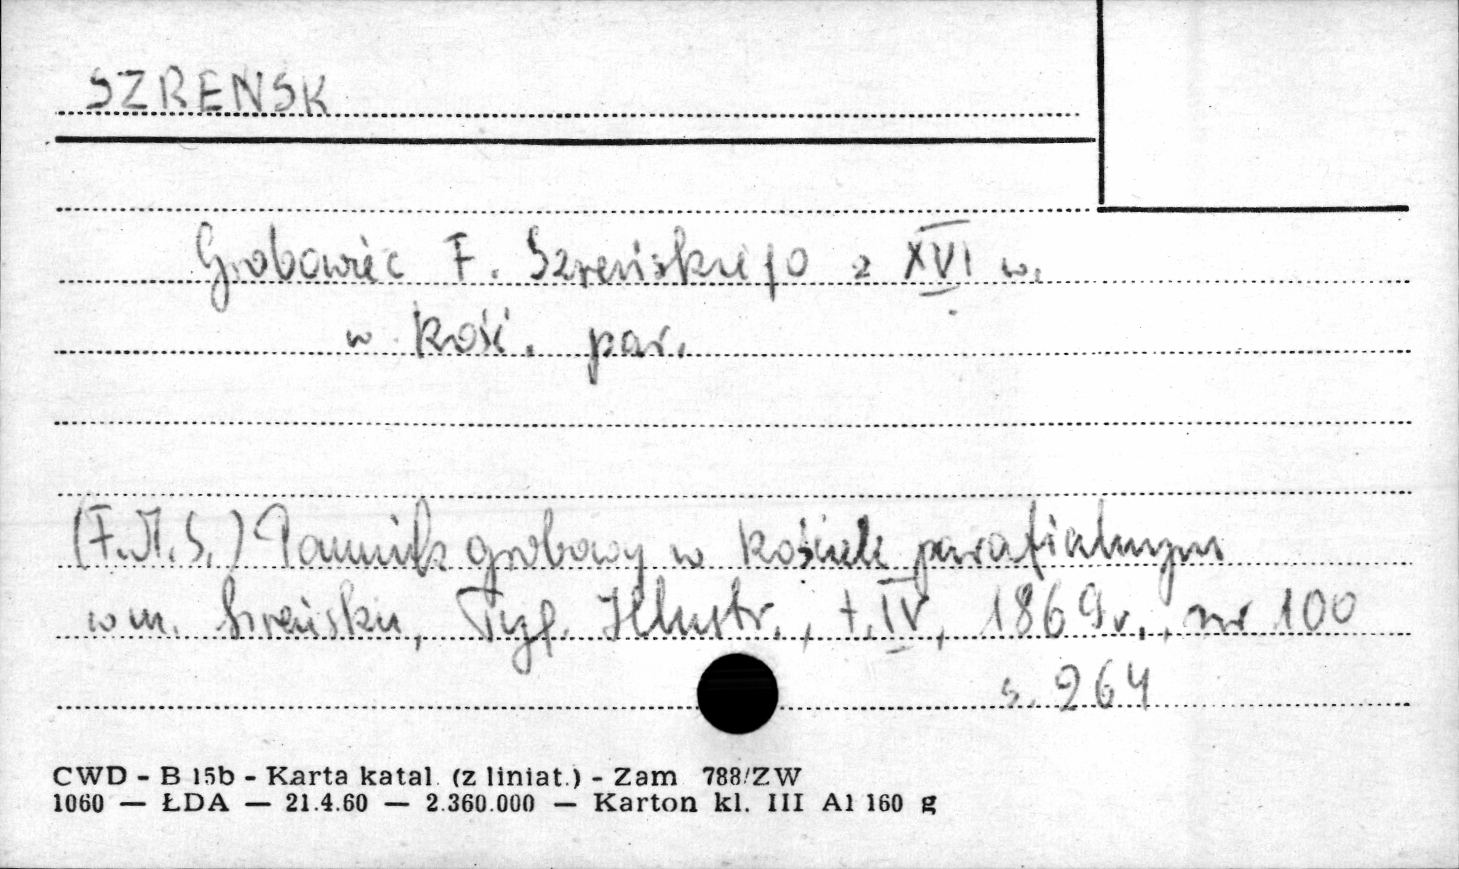 SZREŃSK
Grobowiec F. Szreńskiego z XVI w.
w kość. par.
(F.M.S.) Pomnik grobowy w kościele parafialnym
w m. Szreńsku, Tyg. Illustr., t. IV, 1869 r., nr 100
s. 264
CWD - B 15b - Karta katal. (z liniat.) - Zam 788/ZW
1060 — ŁDA — 21.4.60 — 2.360.000 — Karton kl. III A1 160 g